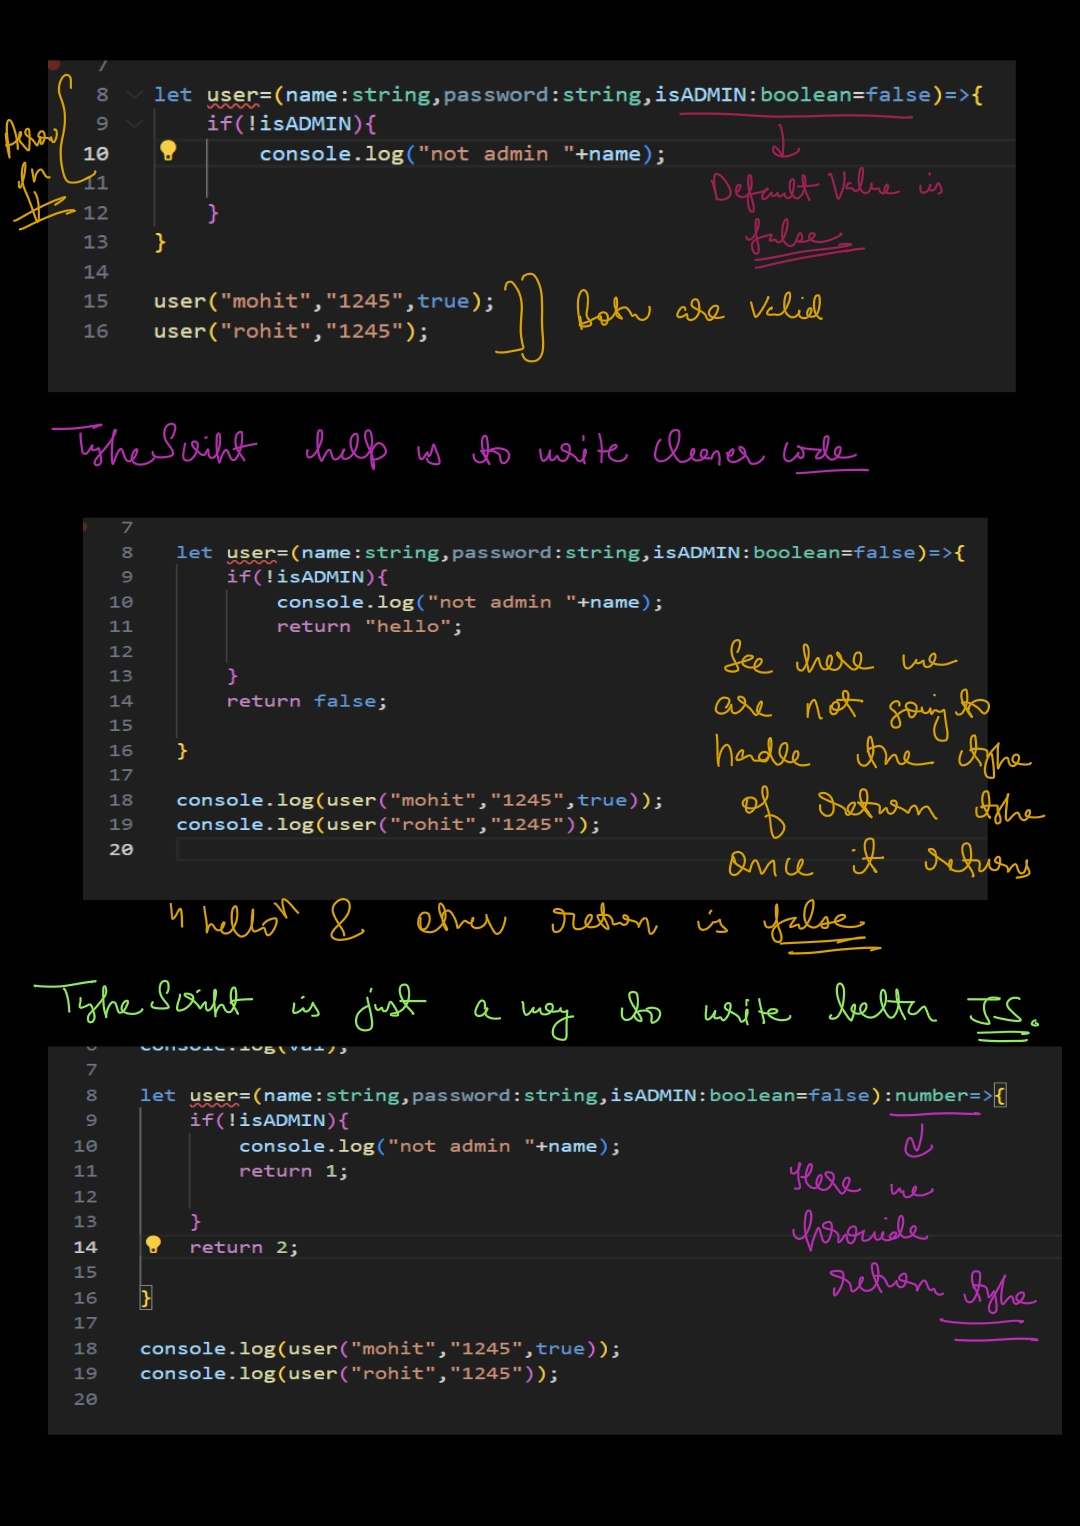 7
8 let user=(name:string,password:string,isADMIN:boolean=false)=>{
9 if(!isADMIN){
10 console.log("not admin "+name);
11
12 }
13 }
14
15 user("mohit","1245",true);
16 user("rohit","1245");
Arrow
fn
Default Value is
false
Both are valid
TypeScript help us to write cleaner code
7
8 let user=(name:string,password:string,isADMIN:boolean=false)=>{
9 if(!isADMIN){
10 console.log("not admin "+name);
11 return "hello";
12
13 }
14 return false;
15
16 }
17
18 console.log(user("mohit","1245",true));
19 console.log(user("rohit","1245"));
20
See here we
are not going to
handle the type
of return type
once it returns
"hello" & other return is false
TypeScript is just a way to write better JS.
6 console.log(val);
7
8 let user=(name:string,password:string,isADMIN:boolean=false):number=>{
9 if(!isADMIN){
10 console.log("not admin "+name);
11 return 1;
12
13 }
14 return 2;
15
16 }
17
18 console.log(user("mohit","1245",true));
19 console.log(user("rohit","1245"));
20
Here we
provide
return type